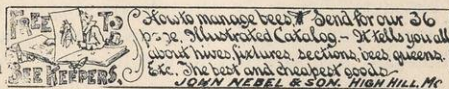 FREE TO
BEE KEEPERS.
How to manage bees. Send for our 36
page Illustrated Catalog.- It tells you all
about hives, fixtures, sections, bees, queens.
Etc. The best and cheapest goods
JOHN NEBEL & SON, HIGH HILL, Mo